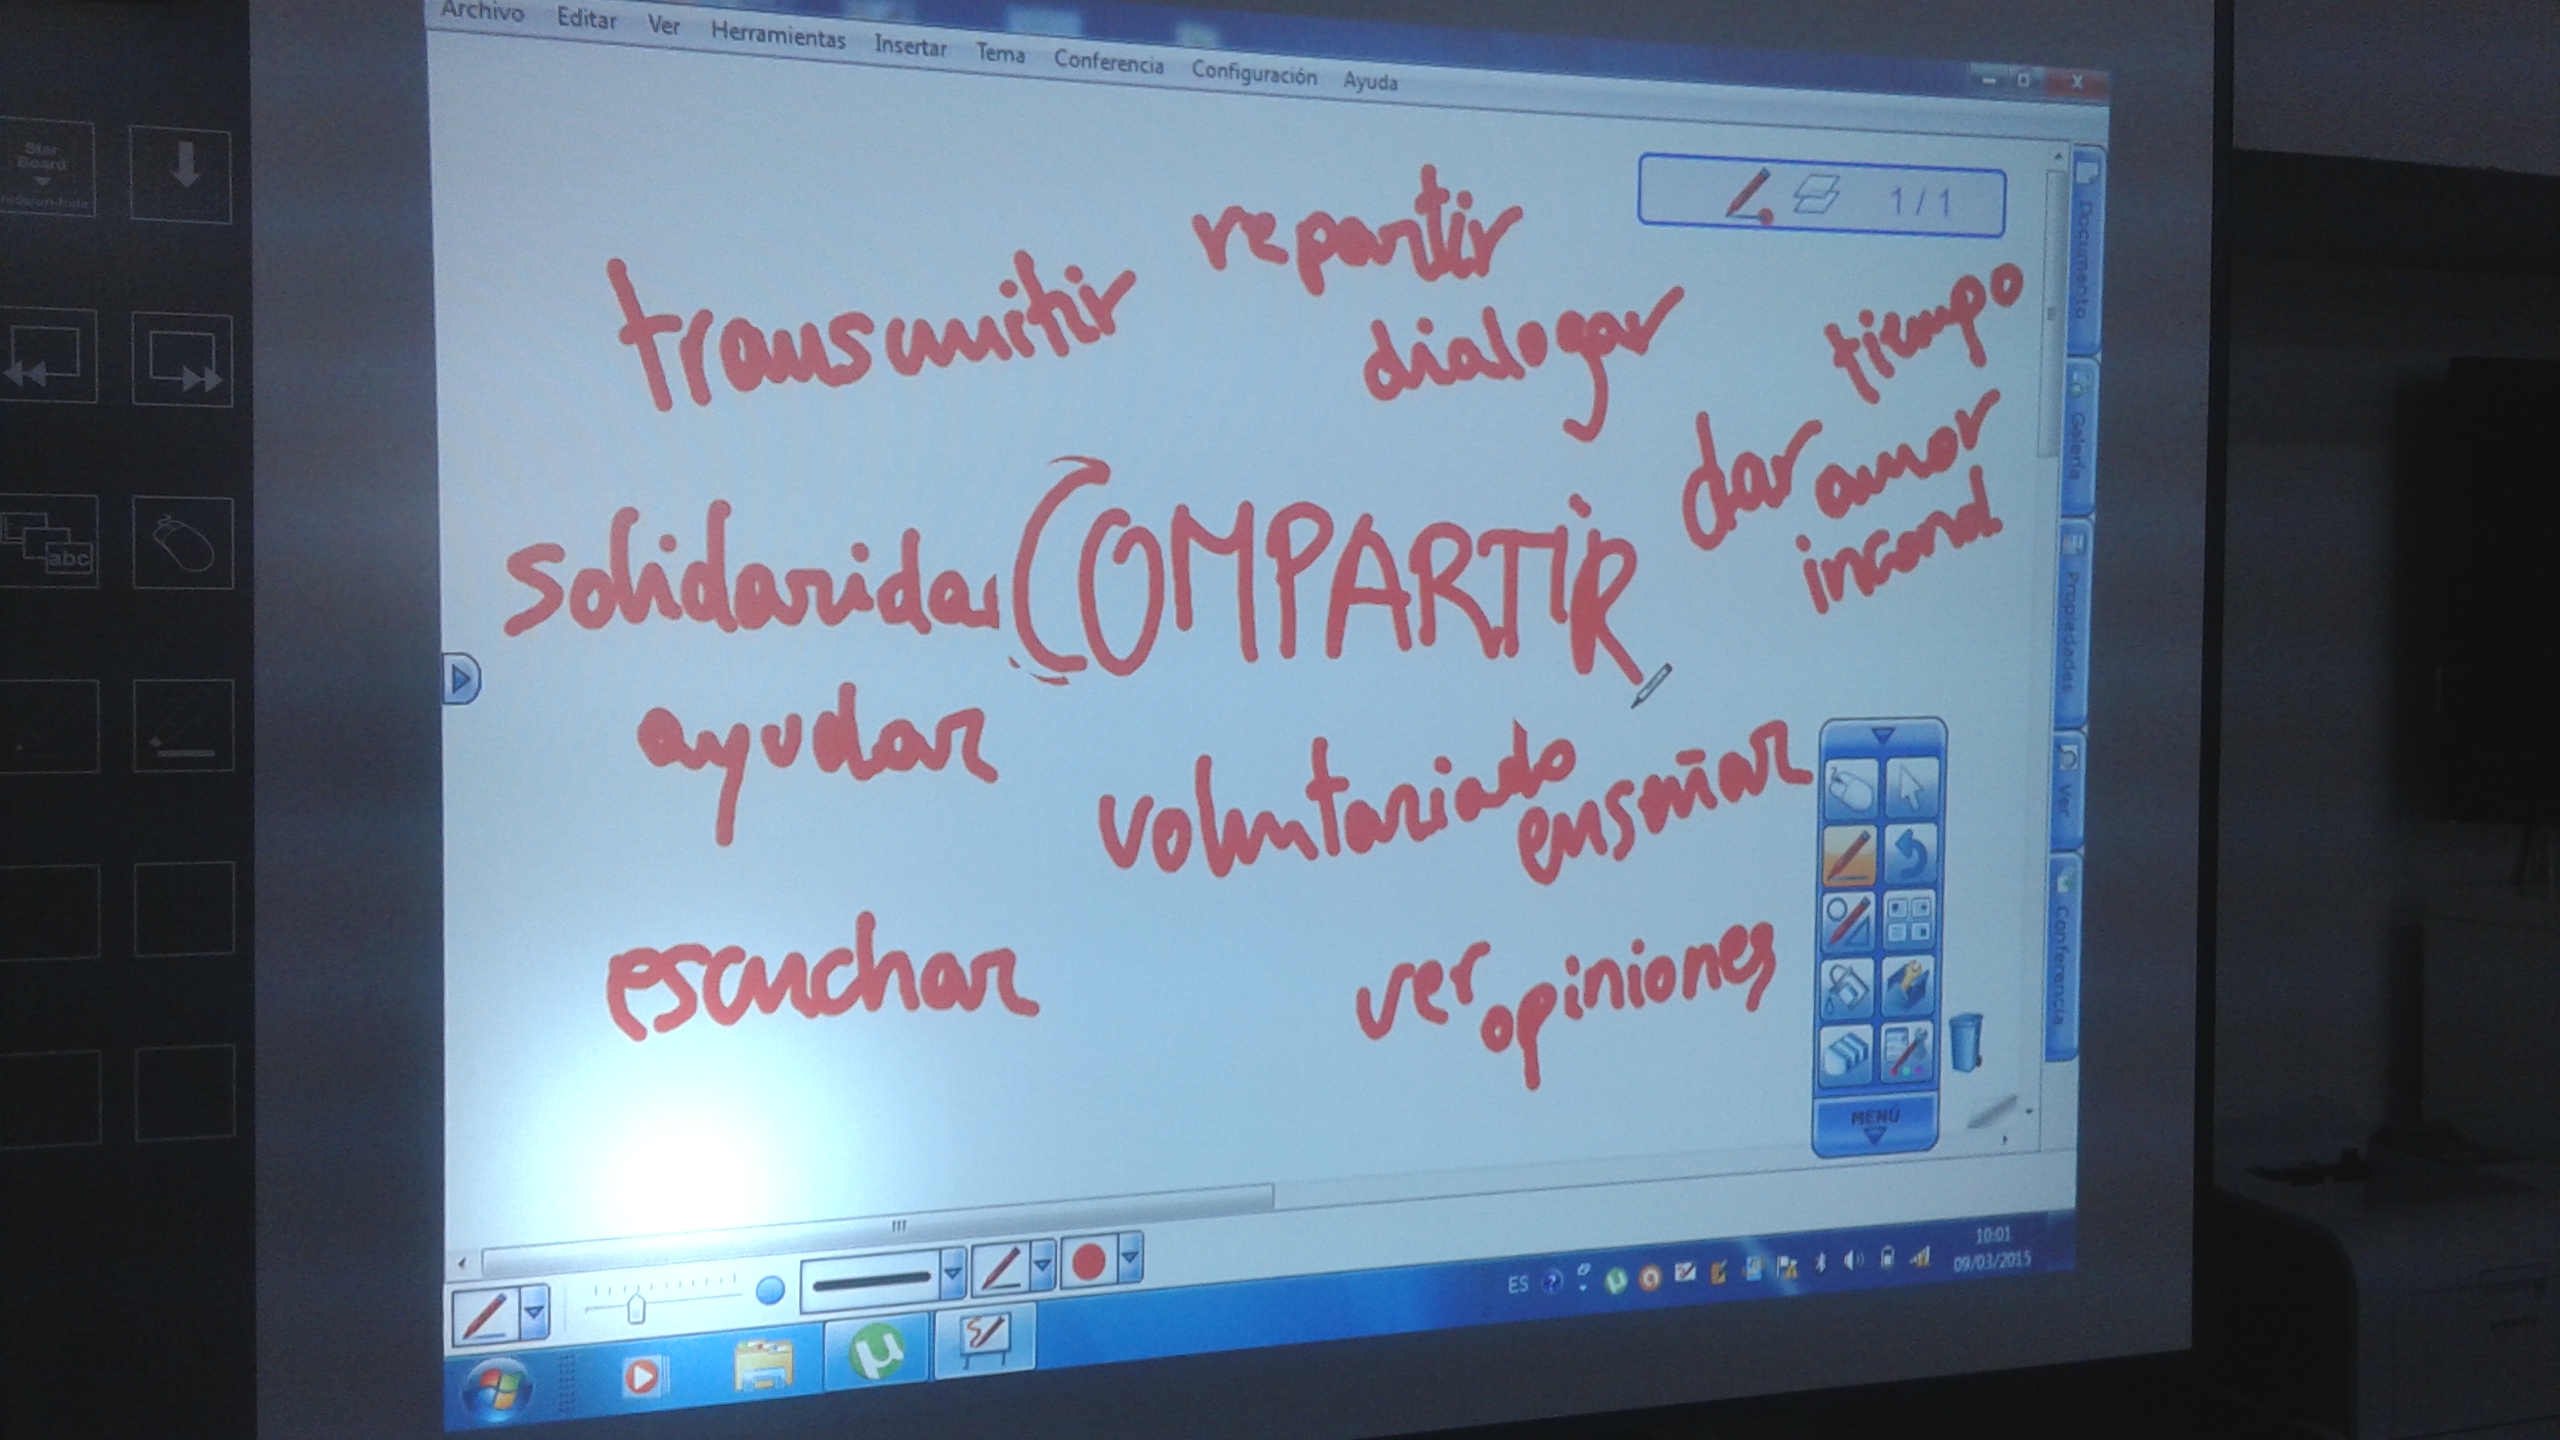 Archivo Editar Ver Herramientas Insertar Tema Conferencia Configuración Ayuda
Star
Board
1 / 1
repartir
transmitir
dialogar
tiempo
dar amor
incond.
solidaridad
COMPARTIR
abc
ayudar
voluntariado
enseñar
escuchar
ver opiniones
MENÚ
Documento
Galería
Propiedades
Ver
Conferencia
ES
10:01
09/03/2015